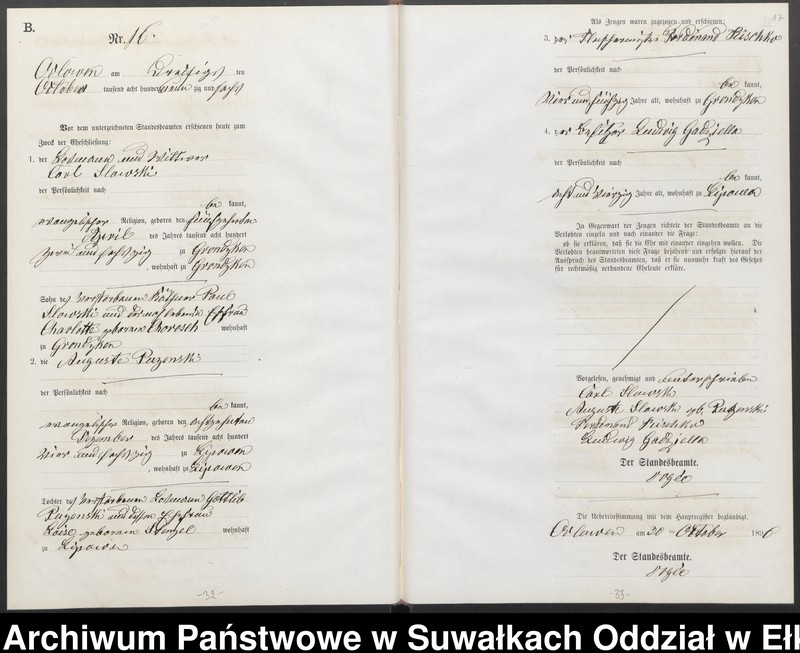 B.
Nr. 16.
Orlowen am dreißigsten
October tausend acht hundert neunzig und sechs
Vor dem unterzeichneten Standesbeamten erschienen heute zum
Zweck der Eheschließung:
1. der Losmann und Wittwer
Carl Slowski
der Persönlichkeit nach
bekannt,
evangelischer Religion, geboren den fünfzehnten
April des Jahres tausend acht hundert
zwei und sechszig zu Grondzken
, wohnhaft zu Grondzken
Sohn des verstorbenen Käthner Paul
Slowski und Ehefrau
Charlotte geborenen Chorosch wohnhaft
zu Grondzken
2. die Auguste Puzenski
der Persönlichkeit nach
bekannt,
evangelischer Religion, geboren den achtzehnten
Dezember des Jahres tausend acht hundert
vier und sechszig zu Lipowen
, wohnhaft zu Lipowen
Tochter des verstorbenen Losmann Gottlieb
Puzenski und dessen Ehefrau
Loise geborenen Stenzel wohnhaft
zu Lipowen
-32-
17
Als Zeugen waren zugezogen und erschienen:
3. der Ferdinand
der Persönlichkeit nach
bekannt,
vier und fünfzig Jahre alt, wohnhaft zu Grondzken
4. der Besitzer Ludwig Gadziella
der Persönlichkeit nach
bekannt,
acht und vierzig Jahre alt, wohnhaft zu Lipowen
In Gegenwart der Zeugen richtete der Standesbeamte an die
Verlobten einzeln und nach einander die Frage:
ob sie erklären, daß sie die Ehe mit einander eingehen wollen. Die
Verlobten beantworteten diese Frage bejahend und erfolgte hierauf der
Ausspruch des Standesbeamten, daß er sie nunmehr kraft des Gesetzes
für rechtmäßig verbundene Eheleute erkläre.
Vorgelesen, genehmigt und unterschrieben
Carl Slowski
Auguste Slowski geb. Puzenski
Ferdinand
Ludwig Gadziella
Der Standesbeamte.
Die Uebereinstimmung mit dem Hauptregister beglaubigt.
Orlowen am 30 ten October 1896
Der Standesbeamte.
-33-
Archiwum Państwowe w Suwałkach Oddział w Ełk